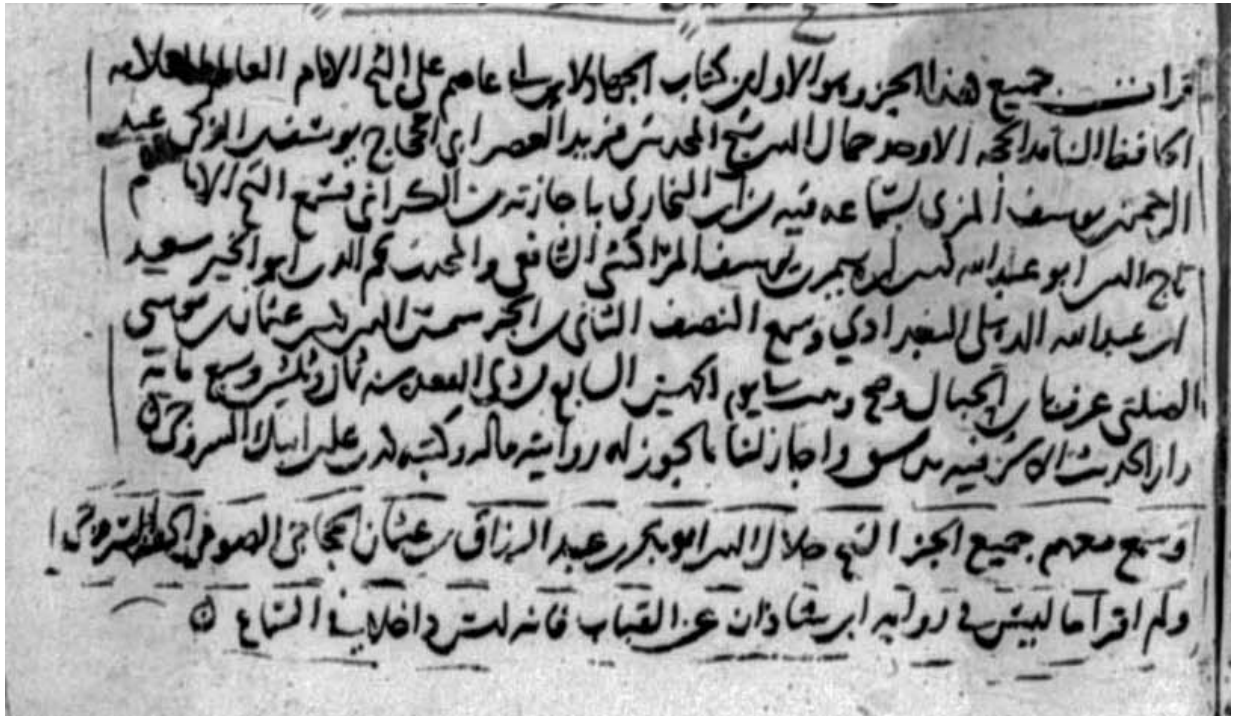 قرات جميع هذا الجزء وهو الاول من كتاب الجهاد لابن ابي عاصم على الشيخ الامام العالم العلامه
الحافظ الناقد الحجه الاوحد جمال الدين شيخ المحدثين فريد العصر ابي الحجاج يوسف بن الزكي عبد
الرحمن بن يوسف المزي بسماعه فيه من ابن البخاري باجازته من الكراني فسمع الشيخ الامام
تاج الدين ابو عبد الله محمد بن ابرهيم بن يوسف المراكشي الشافعي والمحدث نجم الدين ابو الخير سعيد
ابن عبد الله الدهلي البغدادي وسمع النصف الثاني من الجزء شمس الدين محمد بن عثمان بن موسى
الصلتي عرف بابن الجبال وصح وثبت يوم الخميس السابع من ذي القعده سنه ثمان وثلثين وسبع مايه
بدار الحديث الاشرفيه بدمشق واجاز لنا ما يجوز له روايته قاله وكتبه محمد بن علي بن ايبك السروجي
وسمع معهم جميع الجزء الشيخ جلال الدين ابو بكر بن عبد الرزاق بن عثمان الصوفي
ولم اقرا ما ليس في روايه ابن شاذان عن القباب فانه ليس داخلا في السماع